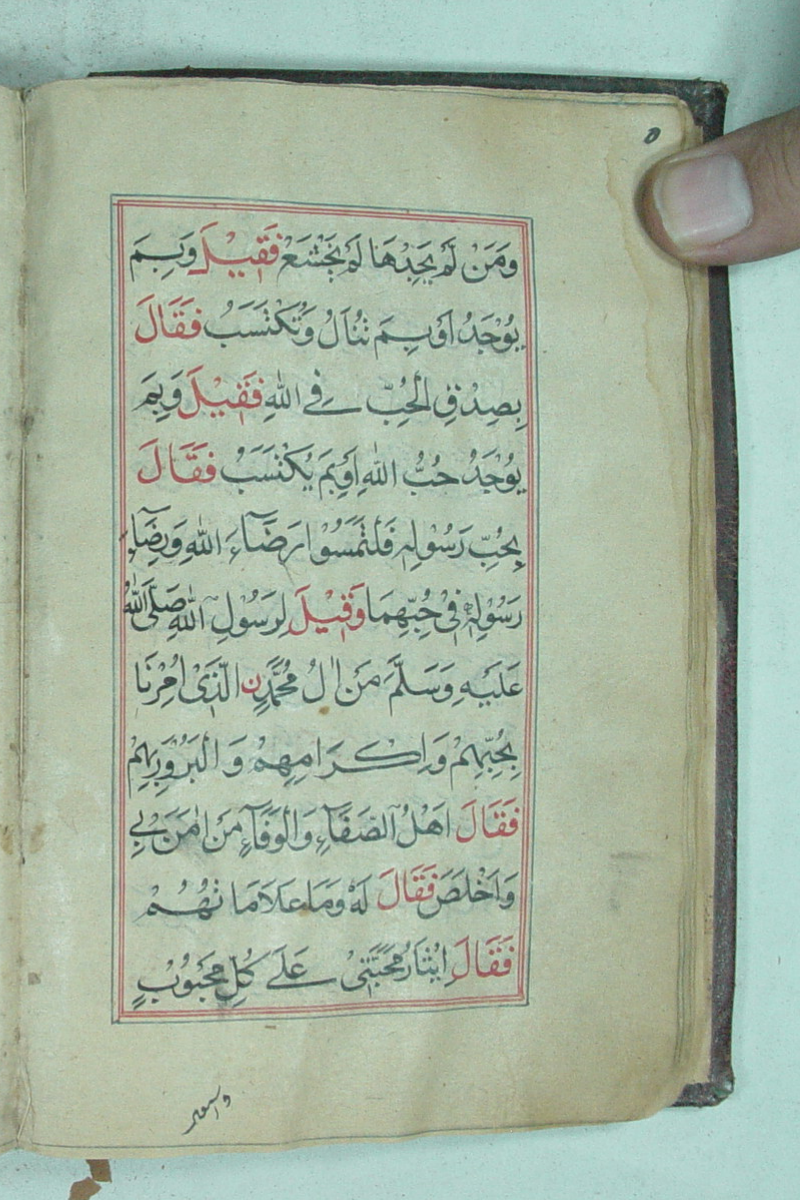 ٥
وَمَنْ لَمْ يَجِدْهَا لَمْ يَخْشَعْ فَقِيْلَ وَبِمَ
يُوْجَدُ اَوْ بِمَ تُنَالُ وَتُكْتَسَبُ فَقَالَ
بِصِدْقِ الْحُبِّ فِي اللهِ فَقِيْلَ وَبِمَ
يُوْجَدُ حُبُّ اللهِ اَوْ بِمَ يُكْتَسَبُ فَقَالَ
بِحُبِّ رَسُوْلِهٖ فَلْتَمِسُوْا رَضَآءَ اللهِ وَرِضَآءَ
رَسُوْلِهٖ فِيْ حُبِّهِمَا وَقِيْلَ لِرَسُوْلِ اللهِ صَلَّى اللهُ
عَلَيْهِ وَسَلَّمَ مَنْ اٰلُ مُحَمَّدِنِ الَّذِيْ اُمِرْنَا
بِحُبِّهِمْ وَاِكْرَامِهِمْ وَالْبُرُوْرِ بِهِمْ
فَقَالَ اَهْلُ الصَّفَآءِ وَالْوَفَآءِ مَنْ اٰمَنَ بِيْ
وَاَخْلَصَ فَقَالَ لَهٗ وَمَا عَلَامَاتُهُمْ
فَقَالَ اِيْثَارُ مَحَبَّتِيْ عَلٰى كُلِّ مَحْبُوْبٍ